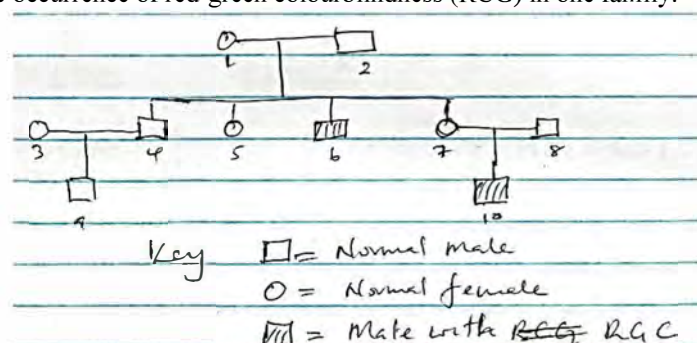 occurrence of red-green colourblindness (RCG) in one family.
1 2
3 4 5 6 7 8
9 10
Key □ = Normal male
○ = Normal female
= Male with RCG RGC